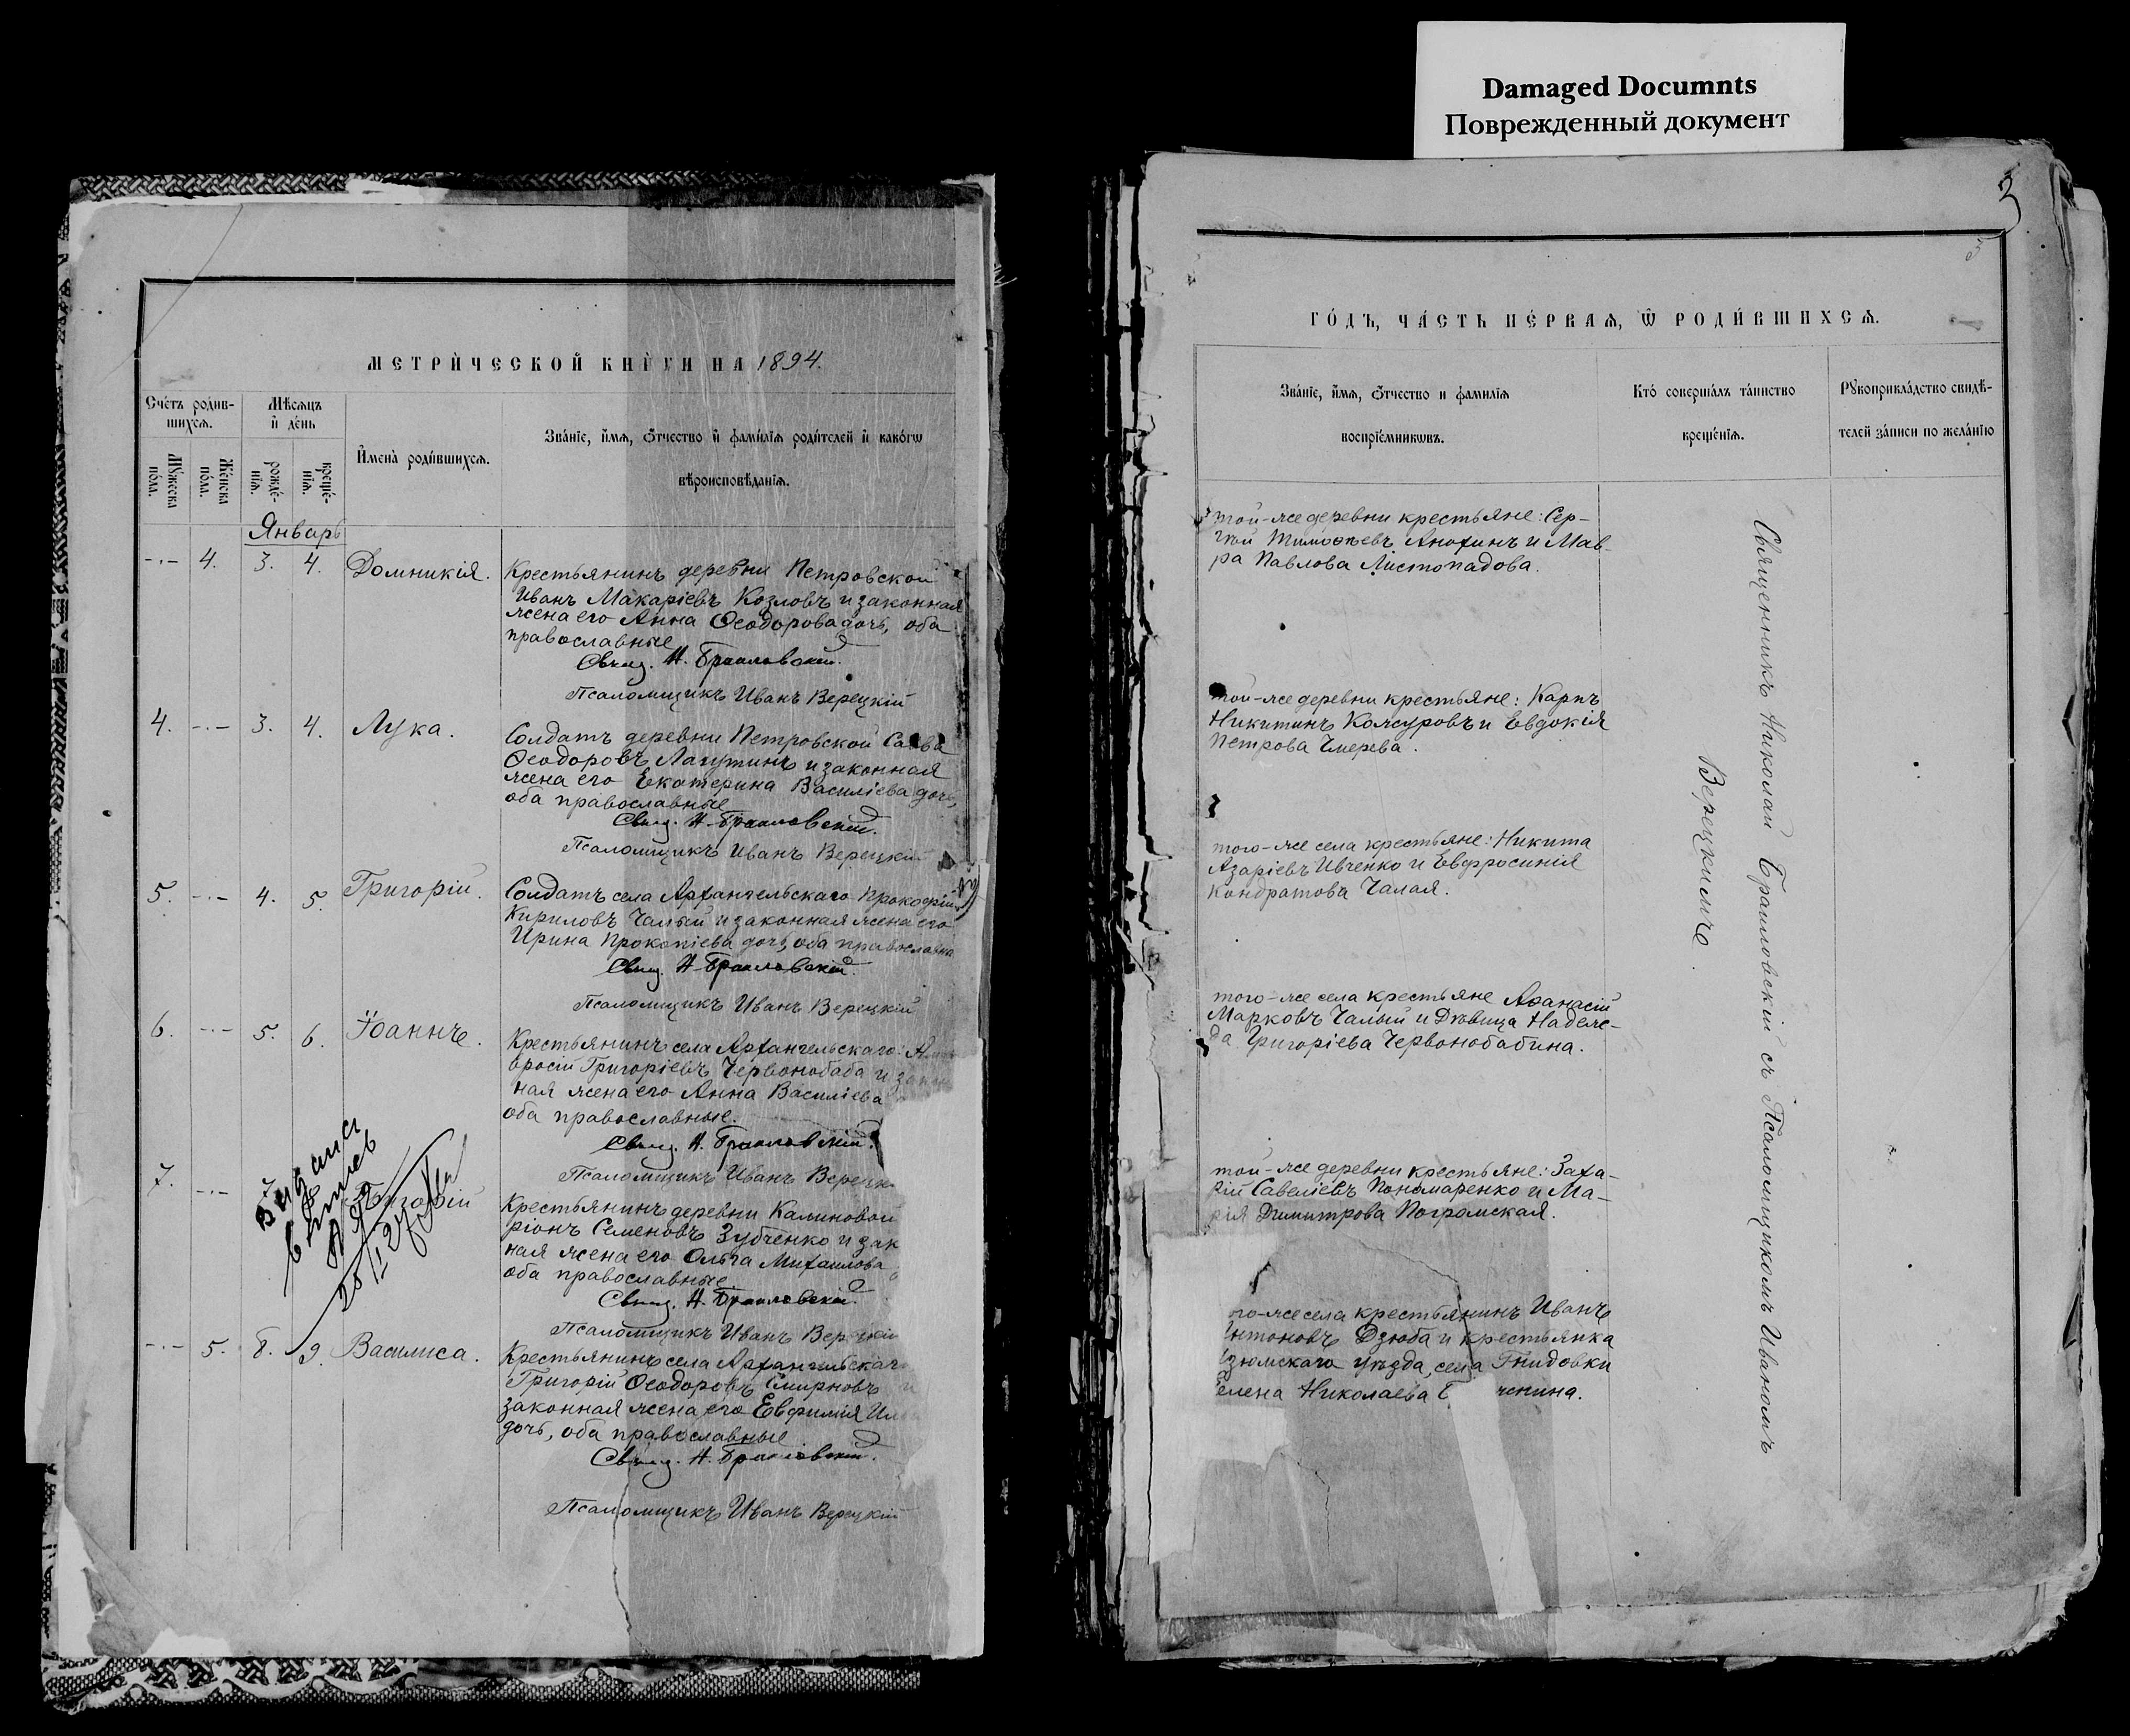 Damaged Documnts
Поврежденный документ
МЕТРИ́ЧЕСКОЙ КНИ́ГИ НА 1894.
Сче́тъ роди́в-
шихсѧ.
Мѣ́сѧцъ
и҆ де́нь
Мꙋ́жеска
по́ла.
Же́нска
по́ла.
рожде́-
нїѧ.
креще́-
нїѧ.
И҆мена̀ роди́вшихсѧ.
Зва́нїе, и҆́мѧ, ѻ҆́тчество и҆ фами́лїѧ роди́телей и҆ како́гѡ
вѣроисповѣ́данїѧ.
Январь
-·- 4. 3. 4. Домникія.
Крестьянинъ деревни Петровской
Иванъ Макаріевъ Козловъ и законная
жена его Анна Ѳеодорова дочь, оба
православные
Свящ. Н. Браиловскій.
Псаломщикъ Иванъ Верецкій
4. -·- 3. 4. Лука.
Солдатъ деревни Петровской Савва
Ѳеодоровъ Лагутинъ и законная
жена его Екатерина Василіева дочь,
оба православные
Свящ. Н. Браиловскій.
Псаломщикъ Иванъ Верецкій
5. -·- 4. 5. Григорій.
Солдатъ села Архангельскаго Прокофій
Кириловъ Чалый и законная жена его
Ирина Прокопіева дочь, оба православны
Свящ. Н. Браиловскій.
Псаломщикъ Иванъ Верецкій
6. -·- 5. 6. Іоаннъ.
Крестьянинъ села Архангельскаго: Ам
вросій Григоріевъ Червонобаба и закон
ная жена его Анна Василіева
оба православные.
Свящ. Н. Браиловскій.
Псаломщикъ Иванъ Верецк
7. -·- 7.
Крестьянинъ деревни Калиновой
ріонъ Семеновъ Зубченко и зак
ная жена его Ольга Михаилова
оба православные.
Свящ. Н. Браиловскій.
Псаломщикъ Иванъ Верецкій
-·- 5. 8. 9. Василиса.
Крестьянинъ села Архангельскаго
Григорій Ѳеодоровъ Смирновъ и
законная жена его Евфимія Ил
дочь, оба православные
Свящ. Н. Браиловскій.
Псаломщикъ Иванъ Верецкій
3
ГО́ДЪ, ЧА́СТЬ ПЕ́РВАѦ, Ѡ҆ РОДИ́ВШИХСѦ.
Зва́нїе, и҆́мѧ, ѻ҆́тчество и фами́лїѧ
воспрїе́мникѡвъ.
Кто̀ соверша́лъ та́инство
креще́нїѧ.
Рꙋкоприкла́дство свидѣ́-
телей за́писи по жела́нїю
той-же деревни крестьяне: Сер-
гѣй Тимоѳеевъ Анохинъ и Мав-
ра Павлова Листопадова.
той-же деревни крестьяне: Карпъ
Никитинъ Кожуровъ и Евдокія
Петрова Чмерева.
того-же села крестьяне: Никита
Азаріевъ Ивченко и Евфросинія
Кондратова Чалая.
того-же села крестьяне Аѳанасій
Марковъ Чалый и Дѣвица Надеж-
да Григоріева Червонобабина.
той-же деревни крестьяне: Заха-
рій Савеліевъ Пономаренко и Ма-
рія Димитрова Погромская.
го-же села крестьянинъ Иванъ
нтоновъ Дзюба и крестьянка
зюмскаго уѣзда, села Гнидовки
елена Николаева ченина.
Священникъ Николай Браиловскій съ Псаломщикомъ Иваномъ
Верецкимъ.